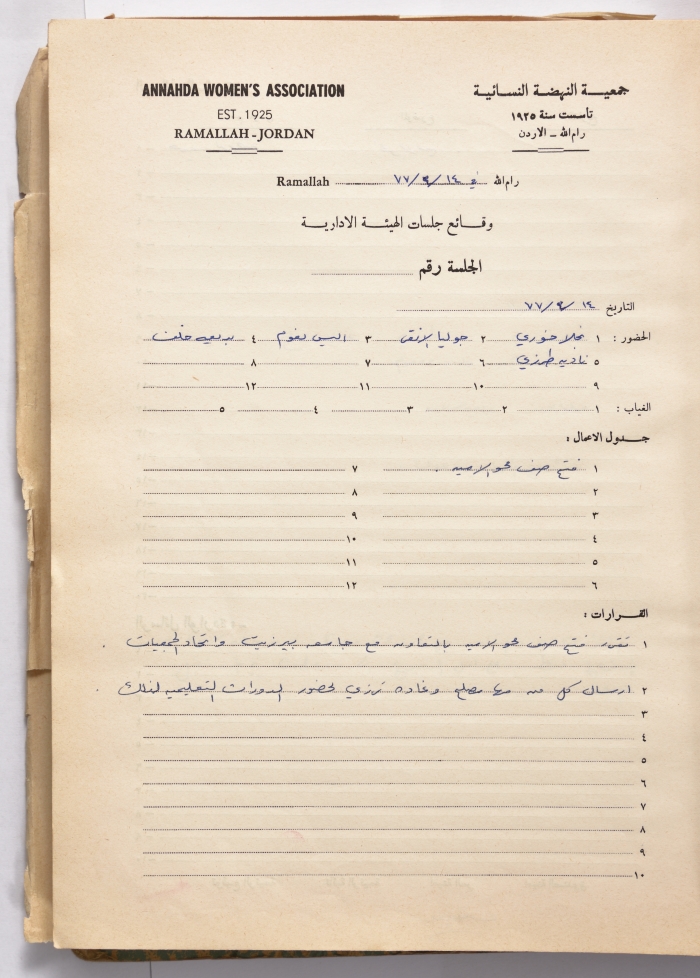 ANNAHDA WOMEN'S ASSOCIATION
EST. 1925
RAMALLAH - JORDAN
جمعيـــة النهضـة النسـائيـة
تأسست سنة ١٩٢٥
رام الله - الاردن
Ramallah في ١٤ /٩/ ٧٧ رام الله
وقـــائع جلسات الهيئـة الاداريـة
الجلسة رقم
التاريخ ١٤ /٩/ ٧٧
الحضور : ١ نجلا خوري ٢ جوليا الاتق ٣ اليس نغوم ٤ بديعه خلف
٥ ناديه طرزي ٦ ٧ ٨
٩ ١٠ ١١ ١٢
الغياب : ١ ٢ ٣ ٤ ٥
جـدول الاعمال :
١ فتح صف محو الاميه . ٧
٢ ٨
٣ ٩
٤ ١٠
٥ ١١
٦ ١٢
القـرارات :
١ تقرر فتح صف محو الاميه بالتعاون مع جامعه بيرزيت واتحاد الجمعيات .
٢ ارسال كل من مها مصلح وغاده ترزي لحضور الدورات التعليميه لذلك .
٣
٤
٥
٦
٧
٨
٩
١٠